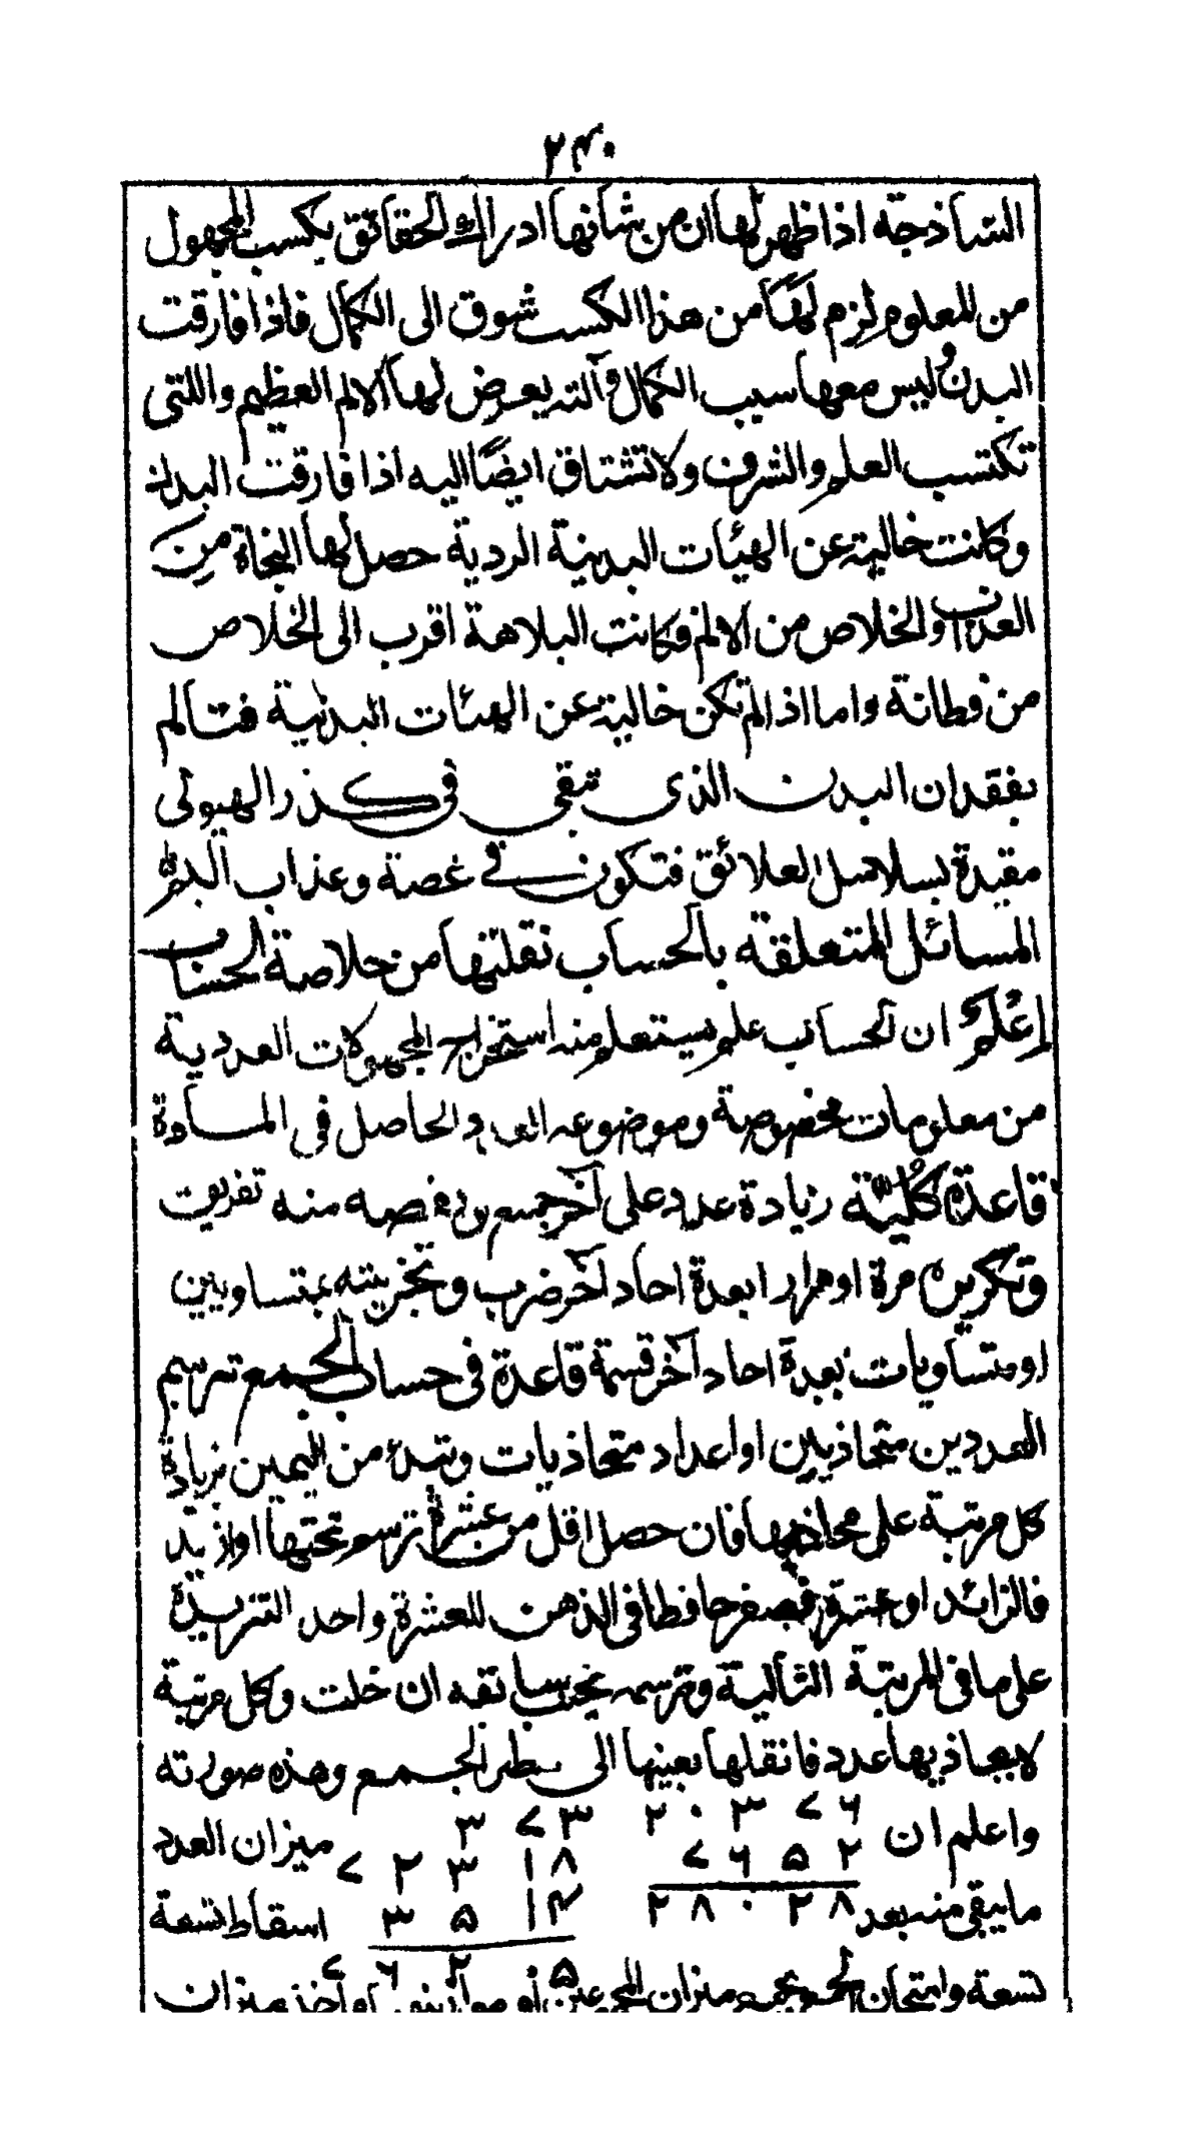 ٢٤٠
الساذجة اذا ظهر لها ان من شانها ادراك الحقائق بكسب المجهول
من المعلوم لزم لها من هذا الكسب شوق الى الكمال فاذا فارقت
البدن وليس معها سبب الكمال وآلته يعرض لها الالم العظيم واللتى
تكتسب العلم والشرف ولا تشتاق ايضًا اليه اذا فارقت البدن
وكانت خالية عن الهيئات البدنية الردية حصل لها النجاة مِن
العذاب والخلاص من الالم فكانت البلاهة اقرب الى الخلاص
من فطانة واما اذا لم تكن خالية عن الهيئات البدنية فتتالم
بفقدان البدن الذى تبقى فى كدر الهيولى
مقيدة بسلاسل العلائق فتكون في غصة وعذاب اليم
المسائل المتعلقة بالحساب نقلتها من خلاصة الحساب
إعْلَمْ ان الحساب علم يستعلم منه استخراج المجهولات العددية
من معلومات مخصوصة وموضوعه العدد الحاصل فى المادة
قاعدة كُلّيّة زيادة عدد على آخر جمع ونقصه منه تفريق
وتكريره مرة او مرارا بعدة احاد آخر ضرب وتجزيته بمتساويين
او متساويات بعدة احاد آخر قسمة قاعدة فى حساب الجمع ترسم
العددين متحاذيين او اعداد متحاذيات وتبدء من اليمين بزيادة
كل مرتبة على محاذيها فان حصل اقل من عشرة ترسم تحتها او ازيد
فالزائد او عشرة فصفر حافظا فى الذهن للعشرة واحد التزيده
على ما فى المرتبة الثالية وترسمه بجنب سابقه ان خلت وكل مرتبة
لا يحاذيها عدد فانقلها بعينها الى سطر الجمع وهذه صورته
واعلم ان ٢٠٣٧٦ ٣٧٣ ميزان العدد
٧٦٥٢ ٧٢٣١٨
ما يبقى منه بعد ٢٨٠٢٨ ٣٥١٤ اسقاط تسعة
٧٦٢٠٥
تسعة وامتحان الجمع بجمع ميزان المجموعين او موازينهم او اخذ ميزان